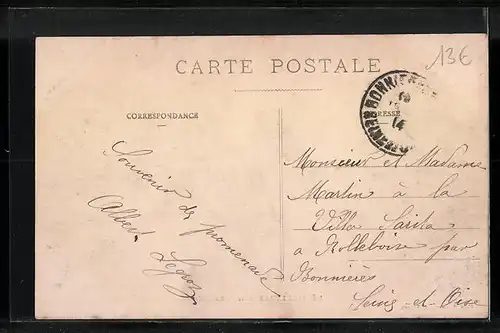 136
CARTE POSTALE
CORRESPONDANCE
Souvenir de promenade
Albert Legros
Monsieur et Madame
Martin à la
Villa Sarita
a Rolleboise par
Bonnières
Seine-et-Oise